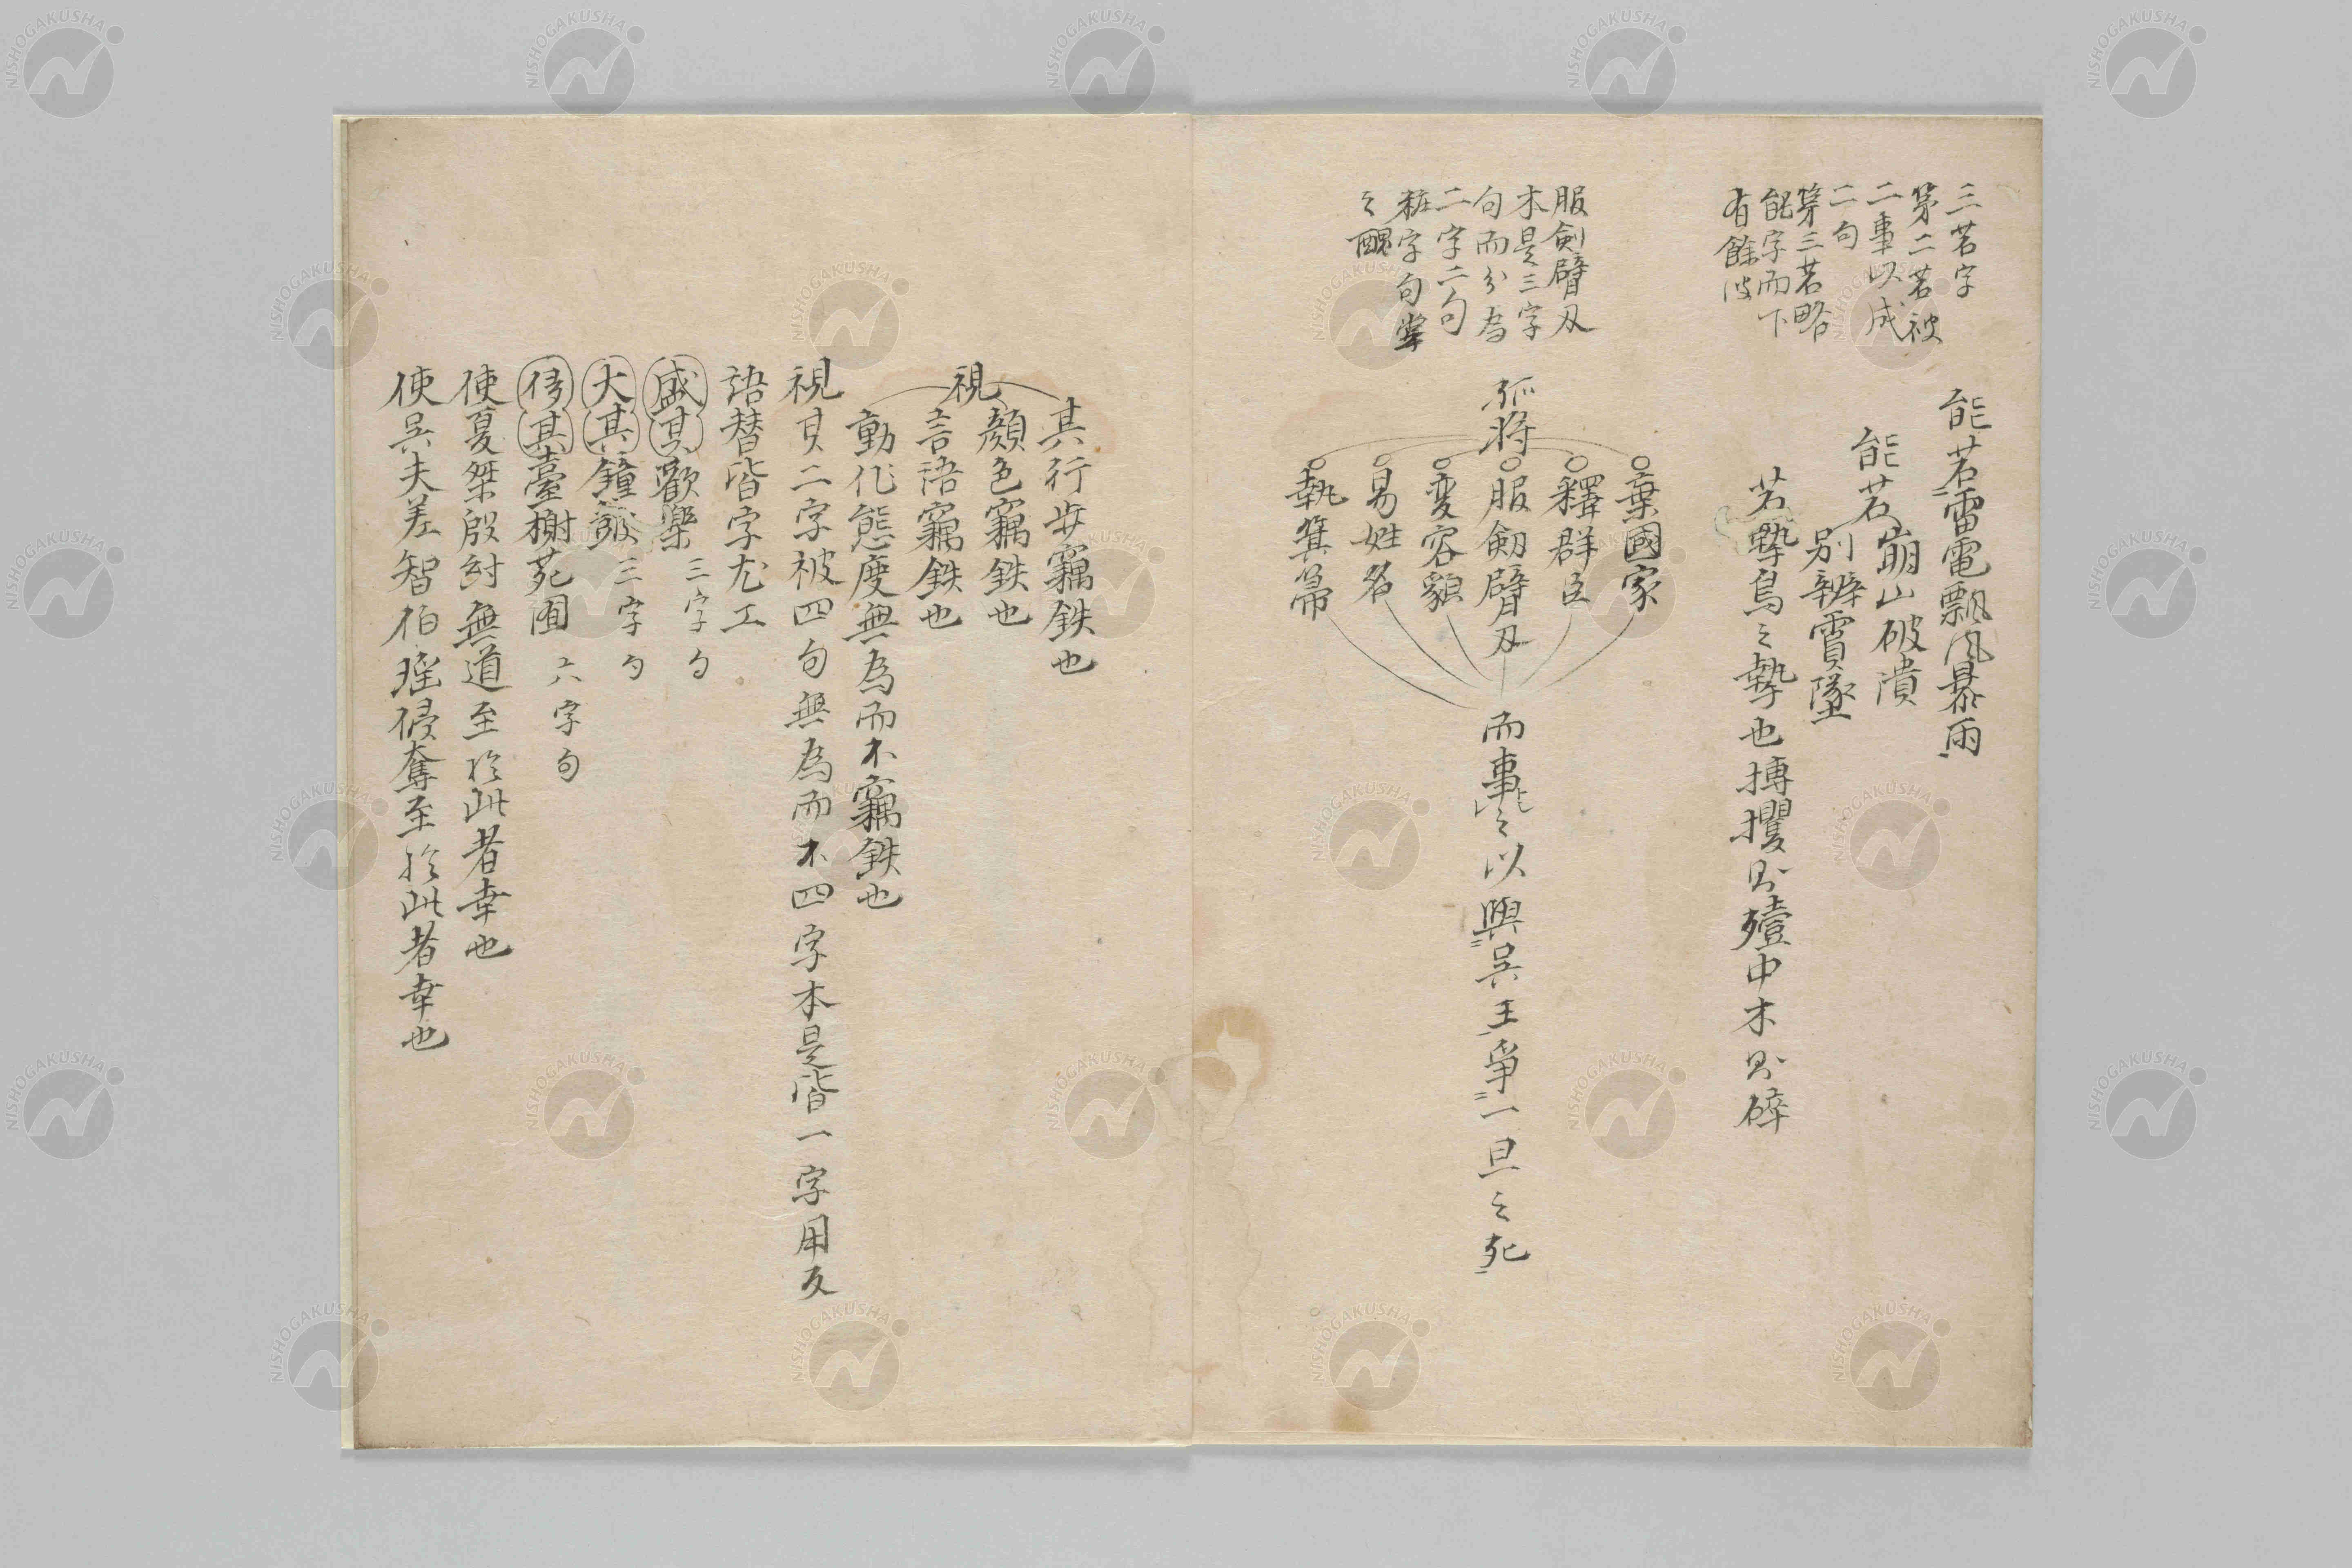 三若字
第二若被
二事以成
二句
第三若略
能字而下
有餘波
能若雷電飄風暴雨
能若崩山破潰
別辨霣墜
若鷙鳥之擊也搏攫則殪中木則碎
服劍臂刃
本是三字
句而分為
二字二句
粧字句

之醜
孤將
棄國家
釋群臣
服劍臂刃
変容貌
易姓名
執箕帚
而事之以與吳王爭一旦之死
視
其行步竊鈇也
顏色竊鈇也
言語竊鈇也
動作態度無為而不竊鈇也
視其二字被四句無為而不四字本是皆一字用反
語替皆字尤工
盛其歡樂 三字句
大其鐘鼓 三字句
侈其臺榭苑囿 六字句
使夏桀殷紂無道至於此者幸也
使吳夫差智伯瑶侵奪至於此者幸也
NISHOGAKUSHA